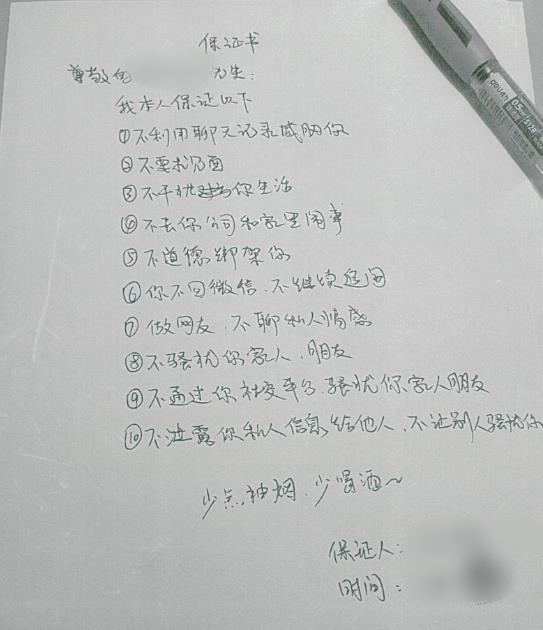 保证书
尊敬的 先生:
我本人保证以下
①不利用聊天记录威胁你
②不要求见面
③不干扰你生活
④不去你公司和家里闹事
⑤不道德绑架你
⑥你不回微信、不继续追问
⑦做网友、不聊私人情感
⑧不骚扰你家人、朋友
⑨不通过你社交平台骚扰你家人朋友
⑩不泄露你私人信息给他人、不让别人骚扰你
少点抽烟、少喝酒~
保证人:
时间:
deli
0.5mm S128